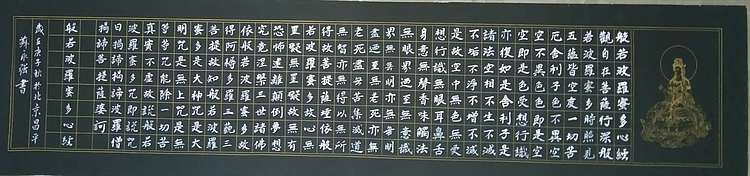 般若波羅蜜多心經
觀自在菩薩行深般
若波羅蜜多時照見
五蘊皆空度一切苦
厄舍利子色不異空
空不異色色即是空
空即是色受想行識
亦復如是舍利子是
諸法空相不生不滅
不垢不淨不增不減
是故空中無色無受
想行識無眼耳鼻舌
身意無聲香味觸法
無眼界乃至無意識
界無無明亦無無明
盡乃至無老死亦無
老死盡無苦集滅道
無智亦無得以無所
得故菩提薩埵依般
若波羅蜜多故心無
罣礙無罣礙故無有
恐怖遠離顛倒夢想
究竟涅槃三世諸佛
依般若波羅蜜多故
得阿耨多羅三藐三
菩提故知般若波羅
蜜多是大神咒是大
明咒是無上咒是無
等等咒能除一切苦
真實不虛故說般若
波羅蜜多咒即說咒
曰揭諦揭諦波羅僧
揭諦菩提薩婆訶
般若波羅蜜多心經
歲在庚子秋於北京昌平
永強書